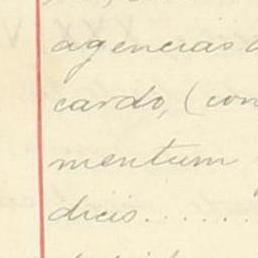 agencias
cardo, (con
mentum
dicis......